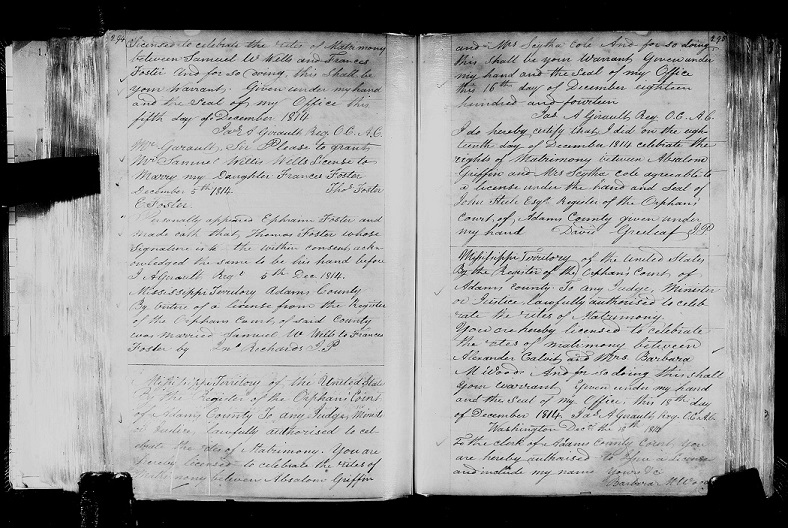 294
License to celebrate the rites of Matrimony
between Samuel W Wells and Frances
Foster And for so doing, this shall be
your warrant. Given under my hand
and the Seal of my Office this
fifth day of December 1814
Jas A Girault Reg. O. C. A. C.
Mr Girault, Sir Please to grant
Mr Samuel Willis Wells License to
Marry my Daughter Frances Foster
December 5th 1814. Thos Foster
E Foster
Personally appeared Ephraim Foster and
made oath that, Thomas Foster whose
Signature is to the within consent, ack-
nowledged the same to be his hand before
J A Girault Regr 5th Dec. 1814.
Mississippi Territory Adams County
By virtue of a license from the Register
of the Orphans Court, of said County
was married Samuel W Wells to Frances
Foster by Richards J. P
Mississippi Territory of the United States
By the Register of the Orphans Court
of Adams County To any Judge, Minis-
or Justice, lawfully authorised to cel-
ebrate the rites of Matrimony. You are
hereby licensed to celebrate the rites of
Matrimony between Absalom Griffin
295
and Mrs Scytha Cole And for so doing
this shall be your Warrant Given under
my hand and the Seal of my Office
this 16th day of December eighteen
hundred and fourteen
Jas A Girault Reg O. C. A. C.
I do hereby certify that, I did on the eigh-
teenth day of December 1814 celebrate the
rights of Matrimony between Absalom
Griffin and Mrs Scytha Cole agreeable to
a license under the hand and Seal of
John Steele Esqr Register of the Orphans
court, of, Adams County given under
my hand David Greeleaf J. P
Mississippi Territory of the United States
By the Register of the Orphans Court, of
Adams County. To any Judge, Minister
or Justice, lawfully authorised to celeb-
rate the rites of Matrimony.
You are hereby licensed to celebrate
the rites of matrimony between
Alexander Calvit, and Mrs. Barbara
M Woods And for so doing this shall
your warrant, Given under my hand
and the Seal of my Office, this 18th day
of December 1814. Jas A Girault Reg. O. C. A. C.
Washington Decr the 18th 1814
To the clerk of Adams County Court, you
are hereby authorised to a license
and include my name Yours &c
Barbara M Woods